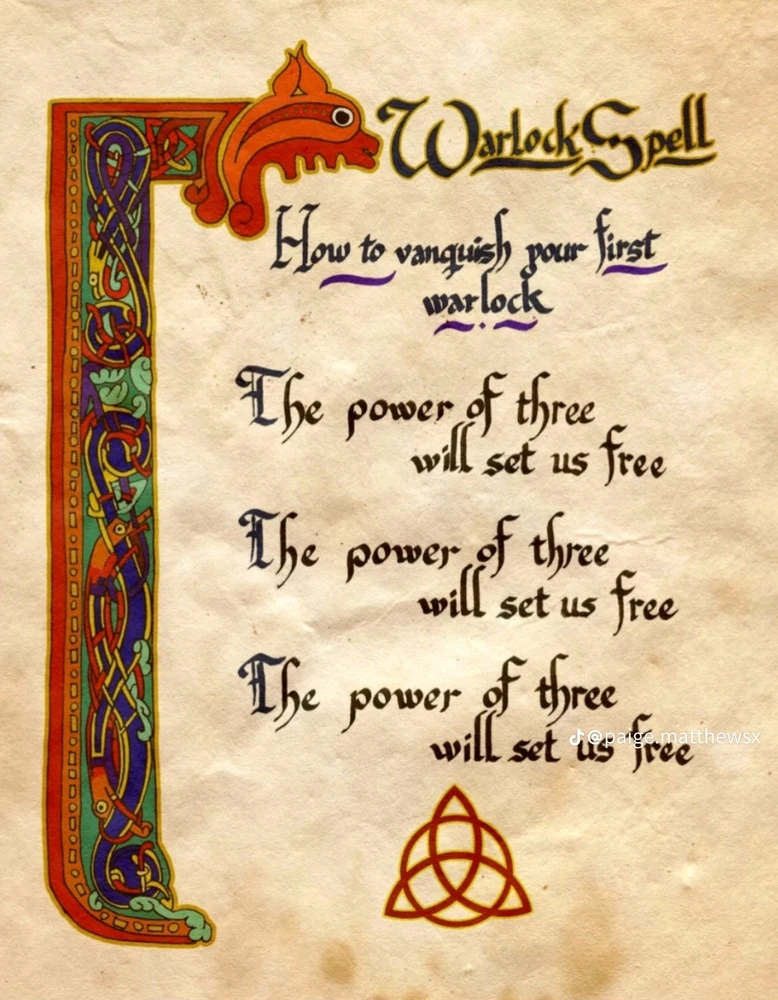 Warlock Spell
How to vanquish your first
warlock
The power of three
will set us free
The power of three
will set us free
The power of three
will set us free
@paige.matthewsx